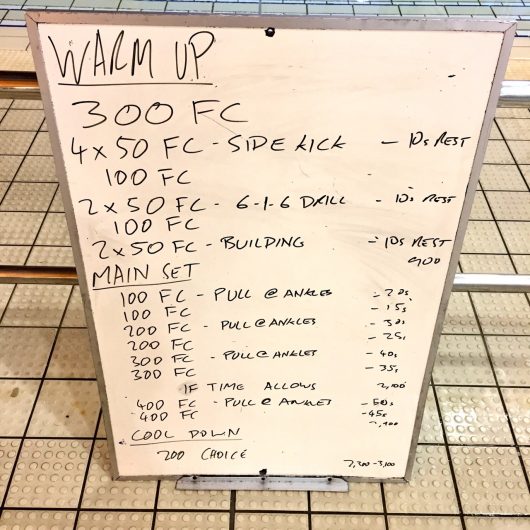 WARM UP
300 FC
4 x 50 FC - SIDE KICK - 10s REST
100 FC
2 x 50 FC - 6-1-6 DRILL - 10s REST
100 FC
2 x 50 FC - BUILDING - 10s REST
900
MAIN SET
100 FC - PULL @ ANKLES - 20s
100 FC - 15s
200 FC - PULL @ ANKLES - 30s
200 FC - 25s
300 FC - PULL @ ANKLES - 40s
300 FC - 35s
IF TIME ALLOWS 2,100
400 FC - PULL @ ANKLES - 50s
400 FC - 45s
COOL DOWN
200 CHOICE
2,300-3,100